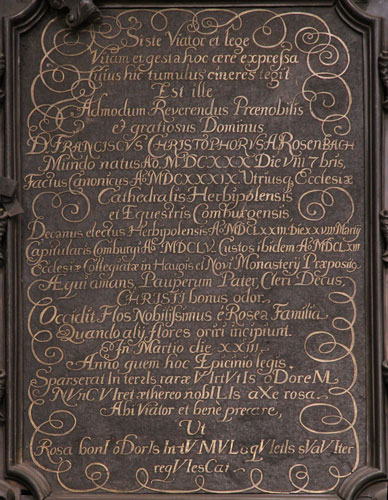 Siste Viator et lege
Vitam et gesta hoc ære expressa
Cujus hic tumulus cineres tegit
Est ille
Admodum Reverendus Prænobilis
et gratiosus Dominus
D. FRANCISCVS CHRISTOPHORVS A ROSENBACH
Mundo natus Ao. MDCXXX. Die VIII 7bris,
Factus Canonicus Ao MDCXXXIX. Utriusq; Ecclesiæ
Cathedralis Herbipolensis
et Equestris Comburgensis,
Decanus electus Herbipolensis Ao MDCLXXIII. Die XXVIII Martij
Capitularis Comburgi Ao MDCLV. Custos ibidem Ao MDCLXIII
Ecclesiæ Collegiatæ in Haugis et Novi Monasterij Præposit9
Æqui amans, Pauperum Pater, Cleri Decus,
CHRISTI bonus odor.
Occidit Flos Nobilissimus è Rosea Familia
Quando alij flores oriri incipiunt.
In Martio die XXIII.
Anno quem hoc Epicinio legis.
Sparserat In terIs raræ VIrtVtIs ODoreM
NVnC VIret æthereo nobILIs aXe rosa.
Abi Viator et bene precare,
Ut
Rosa bonI ODorIs In tVMVLo qVIetIs sVaVIter
reqVIesCat.